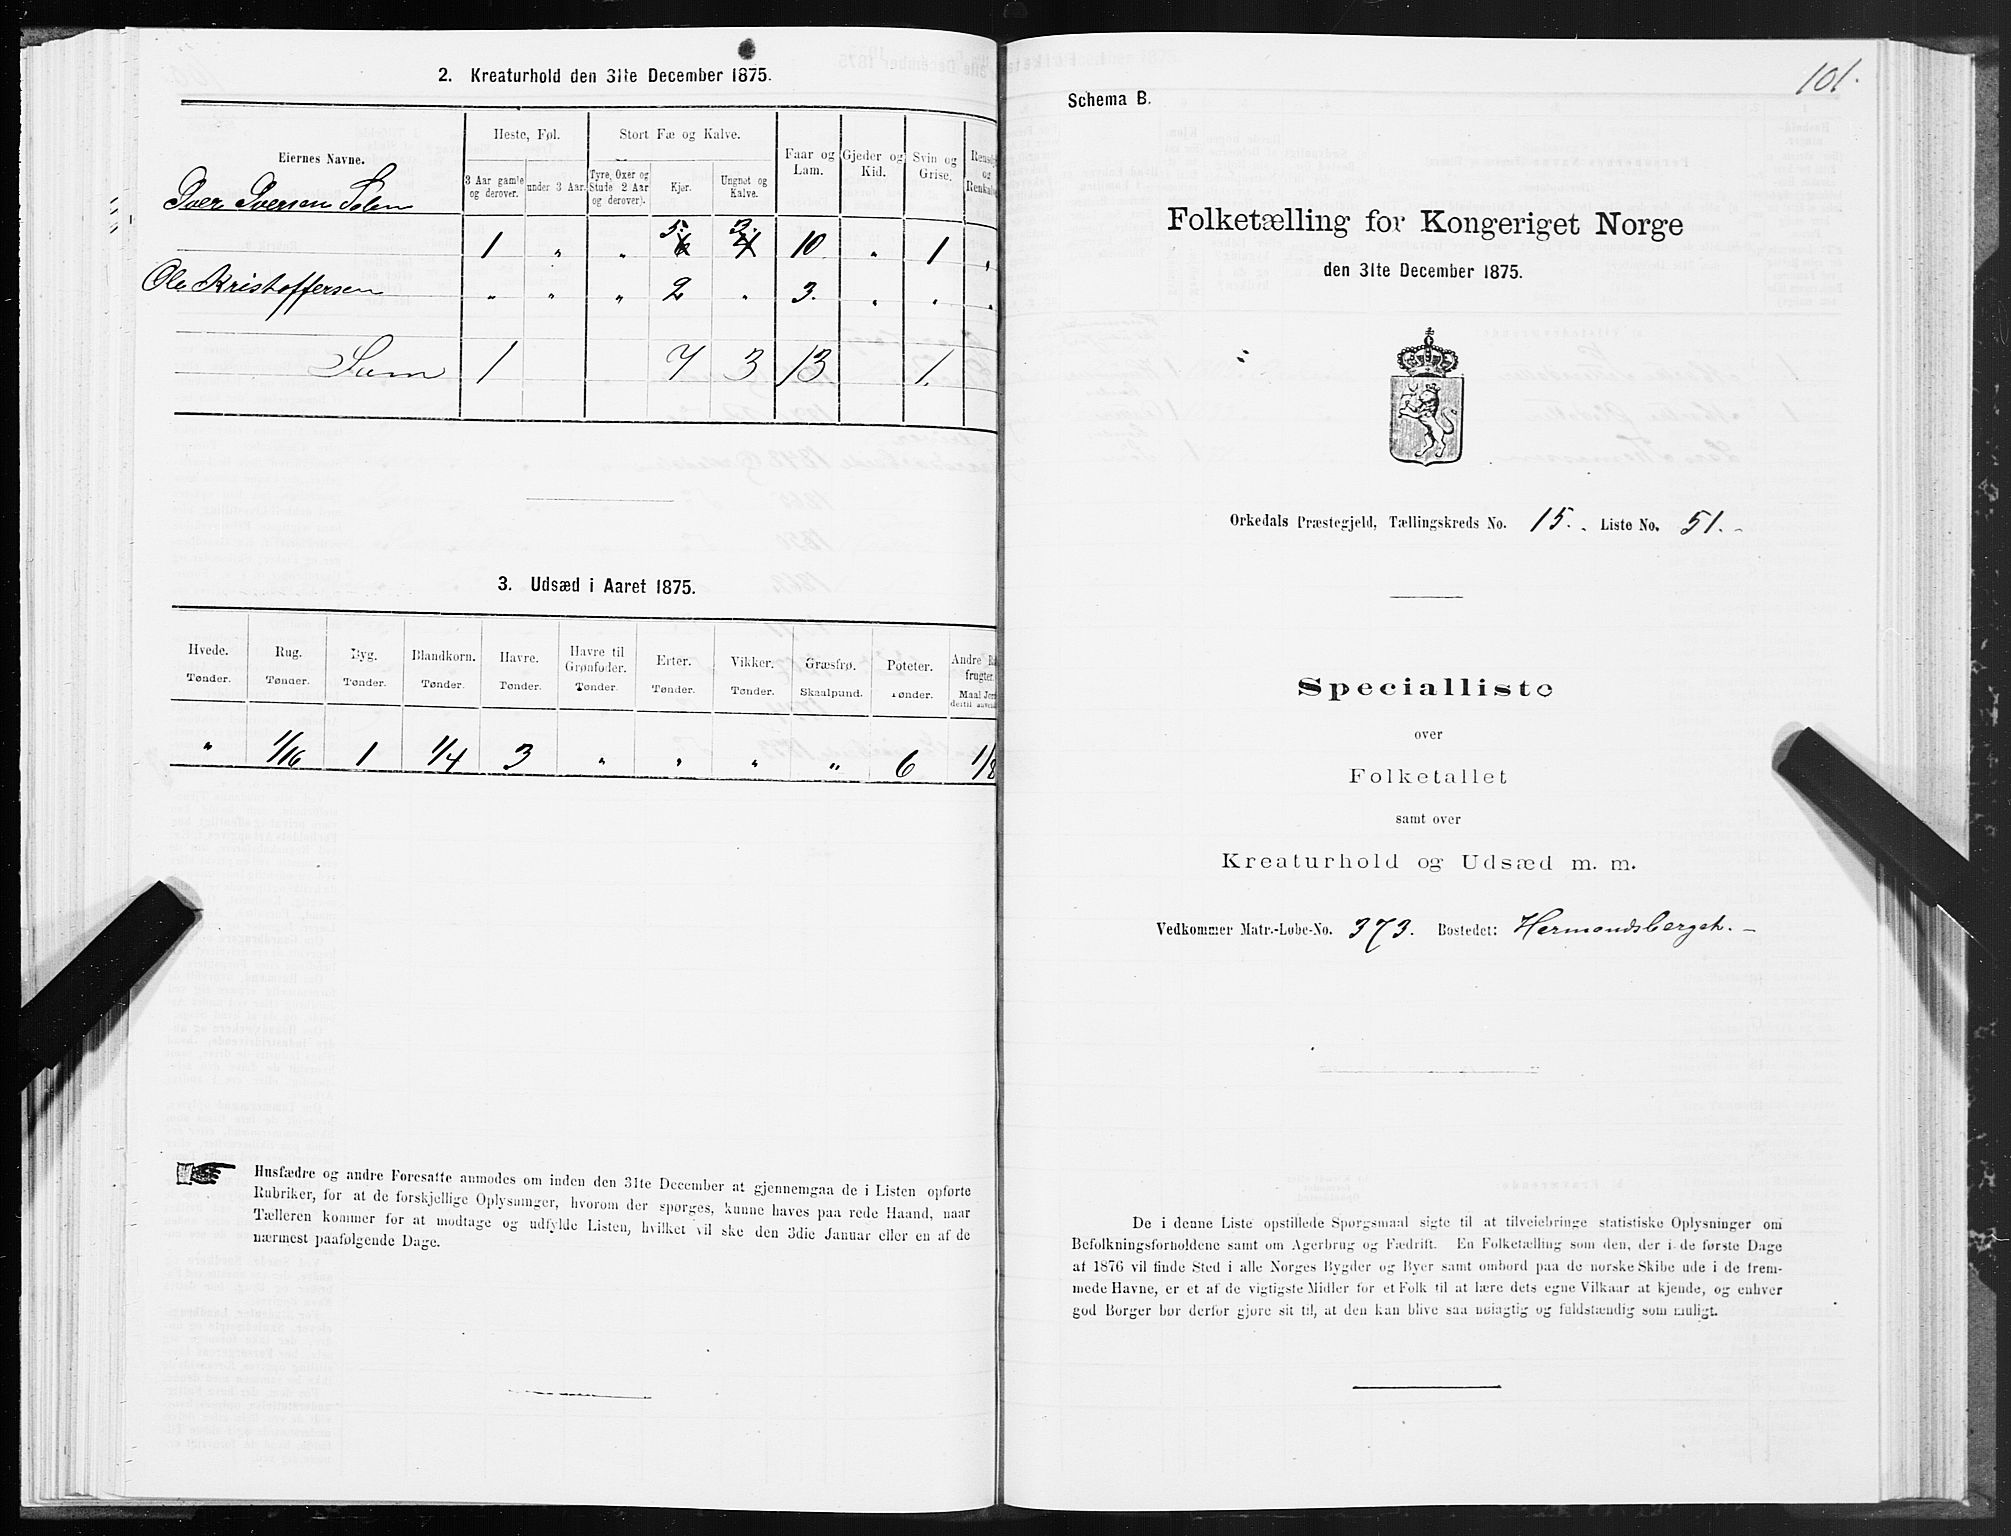 2. Kreaturhold den 31te December 1875.
Eiernes Navne.
Heste, Føl.
Stort Fæ og Kalve.
Faar og Lam.
Gjeder og Kid.
Svin og Grise.
og
3 Aar gamle og derover.
under 3 Aar.
Tyre, Oxer og Stude 2 Aar og derover).
Kjør.
Ungnøt og Kalve.
Iver Iversen Solem
5. 3.
1 " " 6 4 10 " 1 "
Ole Kristoffersen " " " 2 " 3. " " "
Sum 1 7 3 13 1.
3. Udsæd i Aaret 1875.
Hvede. Rug. Byg. Blandkorn. Havre. Havre til Grønfoder. Erter. Vikker. Græsfrø. Poteter. Andre
Tønder. Tønder. Tønder. Tønder. Tønder. Tønder. Tønder. Tønder. Skaalpund. Tønder. Maal
" 1/16 1 1/4 3 " " " " 6 1/8
Husfædre og andre Foresatte anmodes om inden den 31te December at gjennemgaa de i Listen opførte
Rubriker, for at de forskjellige Oplysninger, hvorom der spørges, kunne haves paa rede Haand, naar
Tælleren kommer for at modtage og udfylde Listen, hvilket vil ske den 3die Januar eller en af de
nærmest paafølgende Dage.
101.
Schema B.
Folketælling for Kongeriget Norge
den 31te December 1875.
Orkedals Præstegjeld, Tællingskreds No. 15. Liste No. 51.
Specialliste
over
Folketallet
samt over
Kreaturhold og Udsæd m. m.
Vedkommer Matr.-Løbe-No. 373. Bostedet: Hermondsberget.
De i denne Liste opstillede Spørgsmaal sigte til at tilveiebringe statistiske Oplysninger om
Befolkningsforholdene samt om Agerbrug og Fædrift. En Folketælling som den, der i de første Dage
af 1876 vil finde Sted i alle Norges Bygder og Byer samt ombord paa de norske Skibe ude i de frem-
mede Havne, er et af de vigtigste Midler for et Folk til at lære dets egne Vilkaar at kjende, og enhver
god Borger bør derfor gjøre sit til, at den kan blive saa nøiagtig og fuldstændig som muligt.